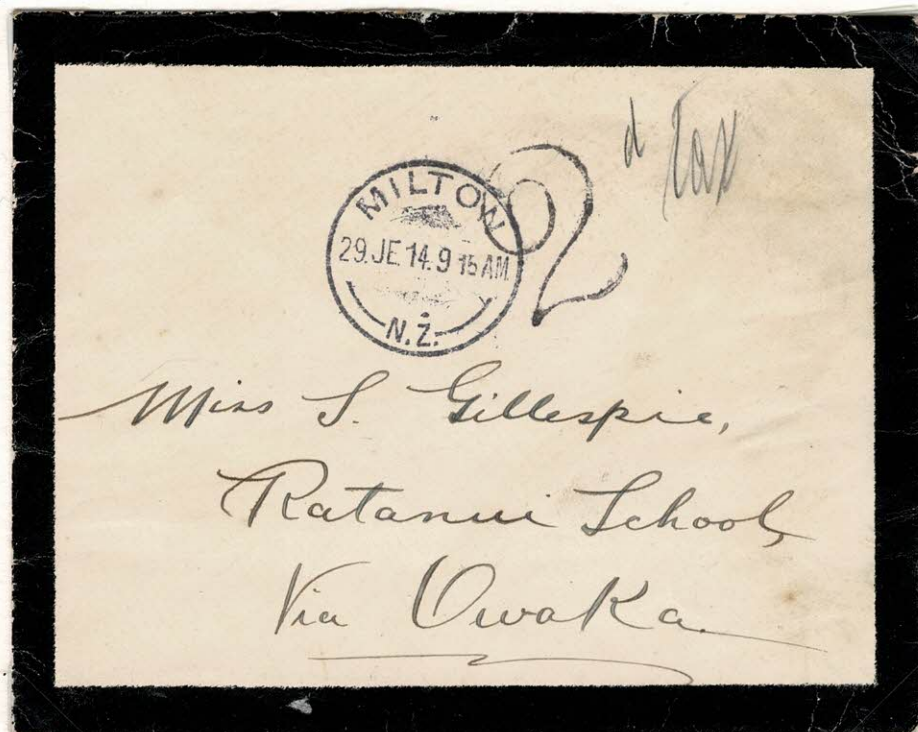 2 d Tax
MILTOW
29.JE.14.9 15AM
N.Z.
Miss S. Gillespie,
Ratanui School,
Via Owaka